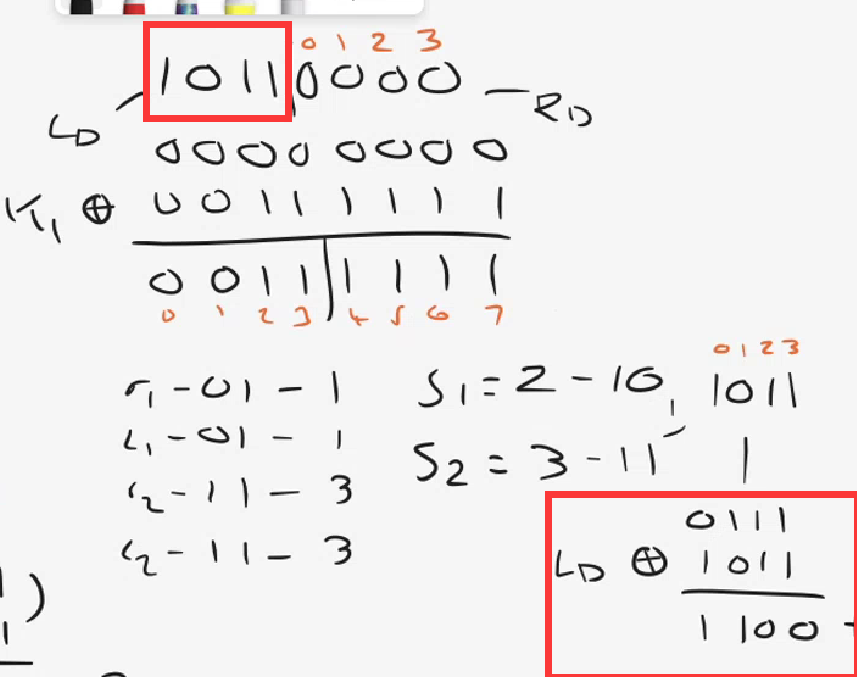 0 1 2 3
1 0 1 1 0 0 0 0 - RD
LD
0 0 0 0 0 0 0 0
K1 ⊕ 0 0 1 1 1 1 1 1
0 0 1 1 | 1 1 1 1
0 1 2 3 4 5 6 7
r1 - 01 - 1
c1 - 01 - 1
r2 - 11 - 3
c2 - 11 - 3
0 1 2 3
S1 = 2 - 10, 1011
S2 = 3 - 11 1
0111
LD ⊕ 1011
1100 -
)
1